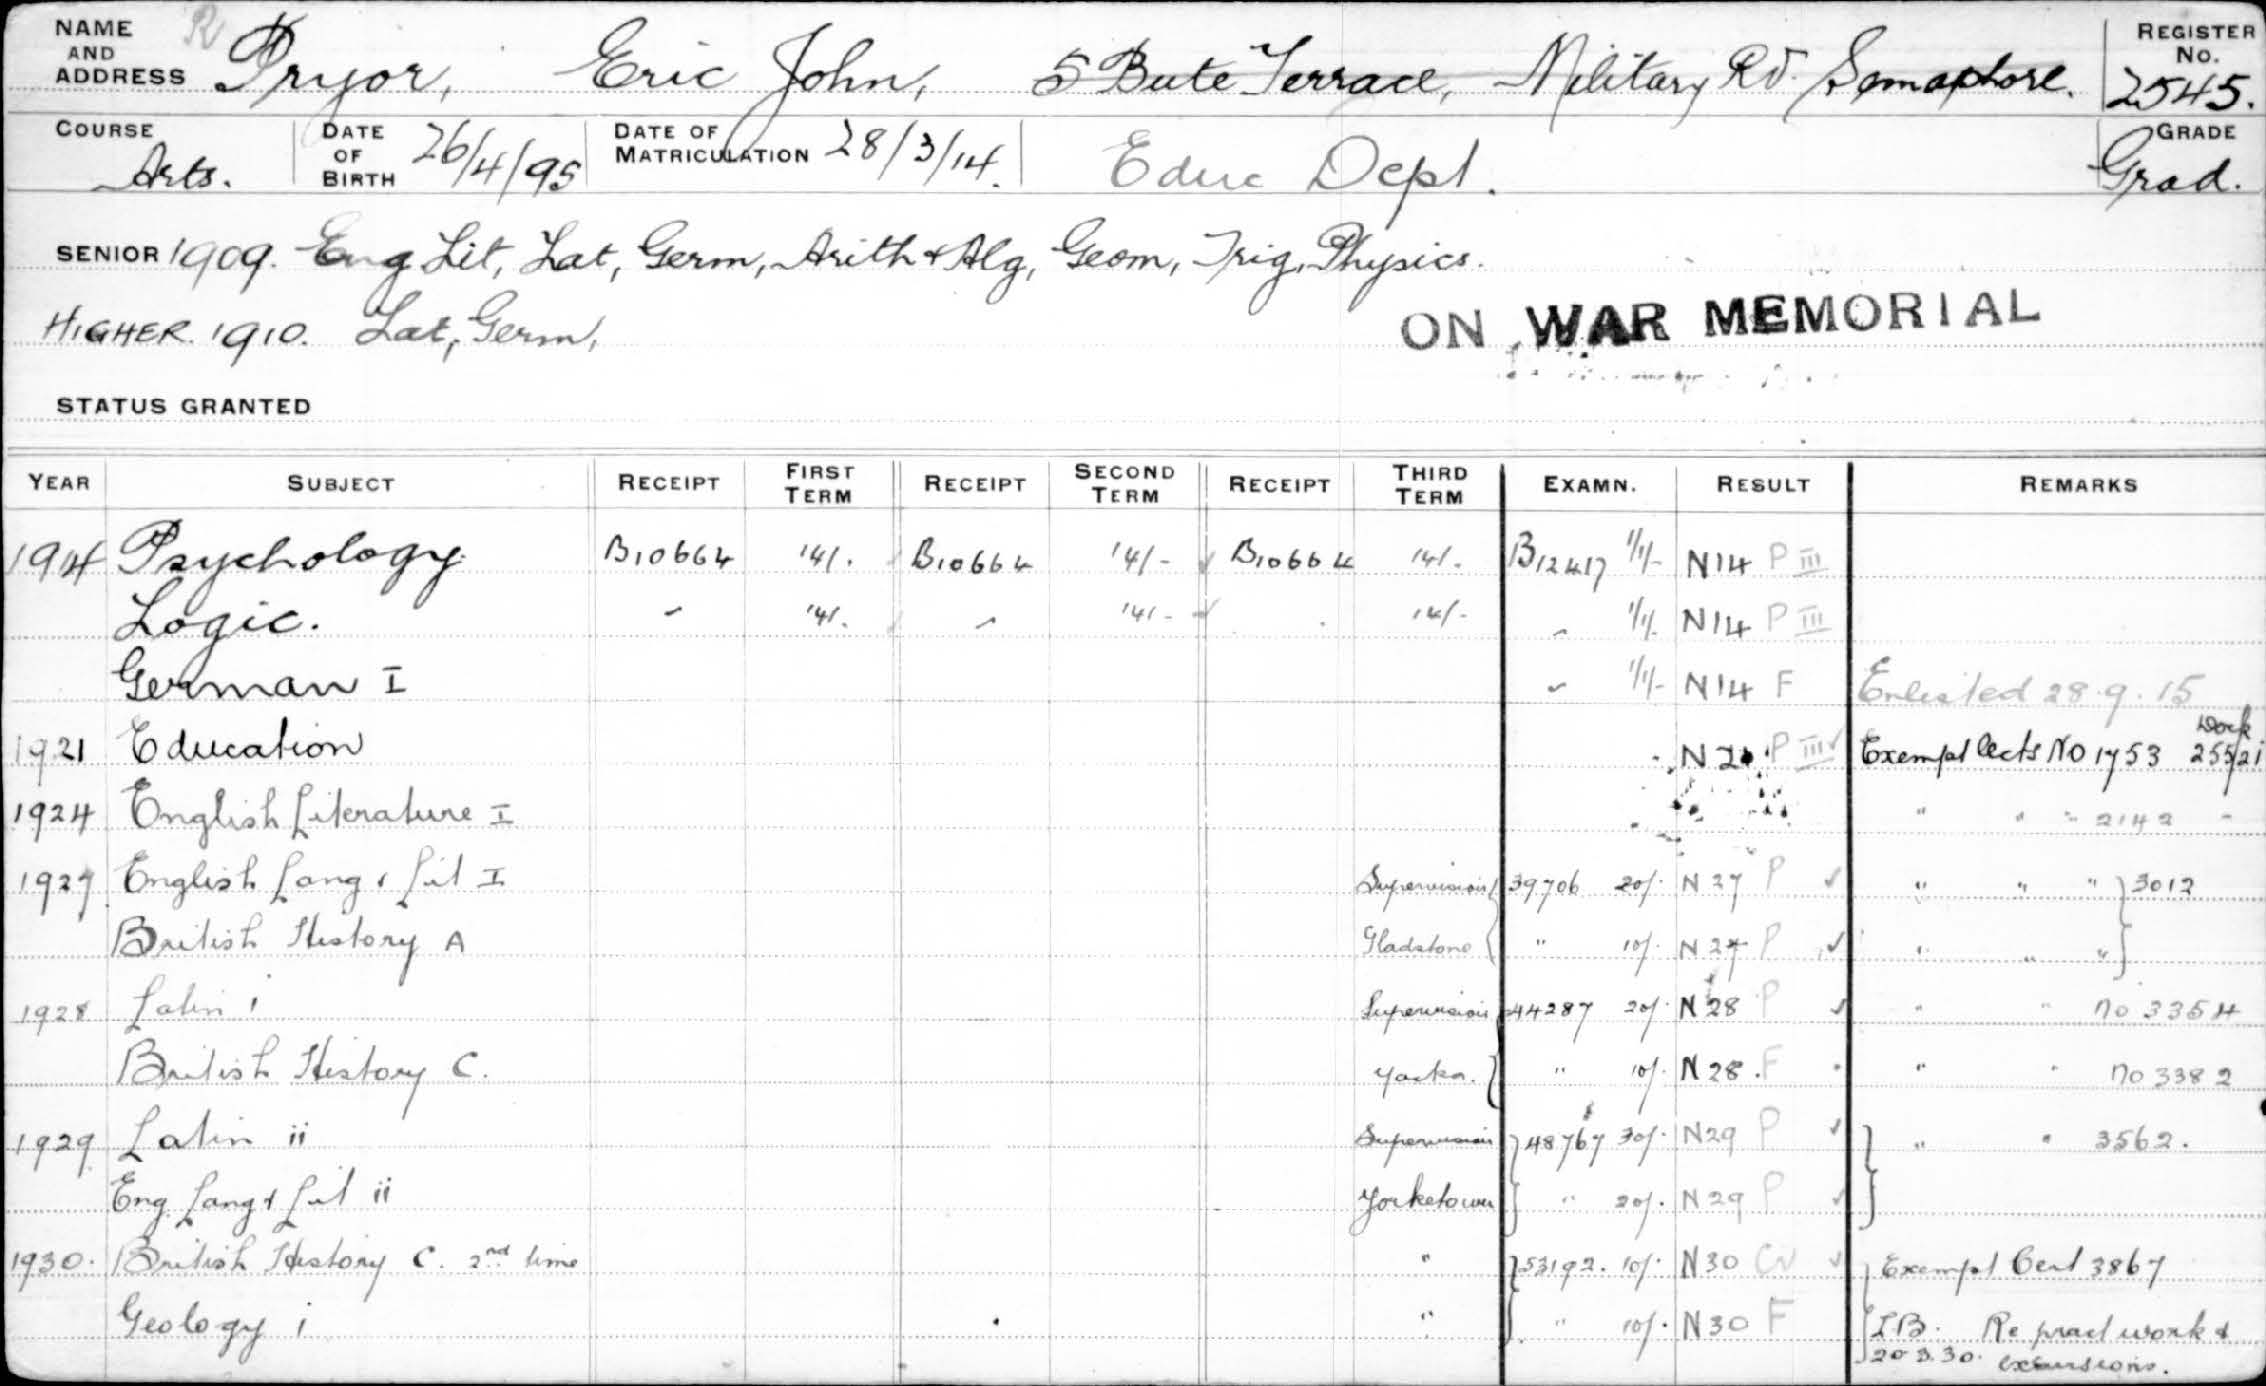 NAME AND ADDRESS Pryor, Eric John, 5 Bute Terrace, Military Rd. Semaphore. REGISTER No. 2545.
COURSE Arts. DATE OF BIRTH 26/4/95 DATE OF MATRICULATION 28/3/14. Educ Dept. GRADE Grad.
SENIOR 1909. Eng Lit, Lat, Germ, Arith & Alg, Geom, Trig, Physics.
HIGHER 1910. Lat, Germ,
ON WAR MEMORIAL
STATUS GRANTED
YEAR SUBJECT RECEIPT FIRST TERM RECEIPT SECOND TERM RECEIPT THIRD TERM EXAMN. RESULT REMARKS
1914 Psychology B10664 14/. B10664 14/- B10664 14/. B12417 1/1/- N14 P III
Logic. " 14/. " 14/- 14/- " 1/1/. N14 P III
German I " 1/1/- N14 F Enlisted 28.9.15
1921 Education N21 P III ✓ Exempt lects No 1753 Work 255/21
1924 English Literature I " " " 2142 -
1927 English Lang & Lit I Supervision 39706 20/. N27 P ✓ " " " } 3012
British History A Gladstone " 10/. N27 P ✓ " " "
1928 Latin I Supervision 44287 20/. N28 P ✓ " " no 3354
British History C. Yacka. " 10/. N28. F " " no 3382
1929 Latin ii Supervision 48767 30/. N29 P ✓ " " 3562.
Eng. Lang & Lit ii Yorketown " 20/. N29 P ✓
1930. British History C. 2nd time " 53192. 10/. N30 Cr ✓ Exempt Cert 3867
Geology i " " 10/. N30 F I.B. Re pract work &
20.3.30. excursions.